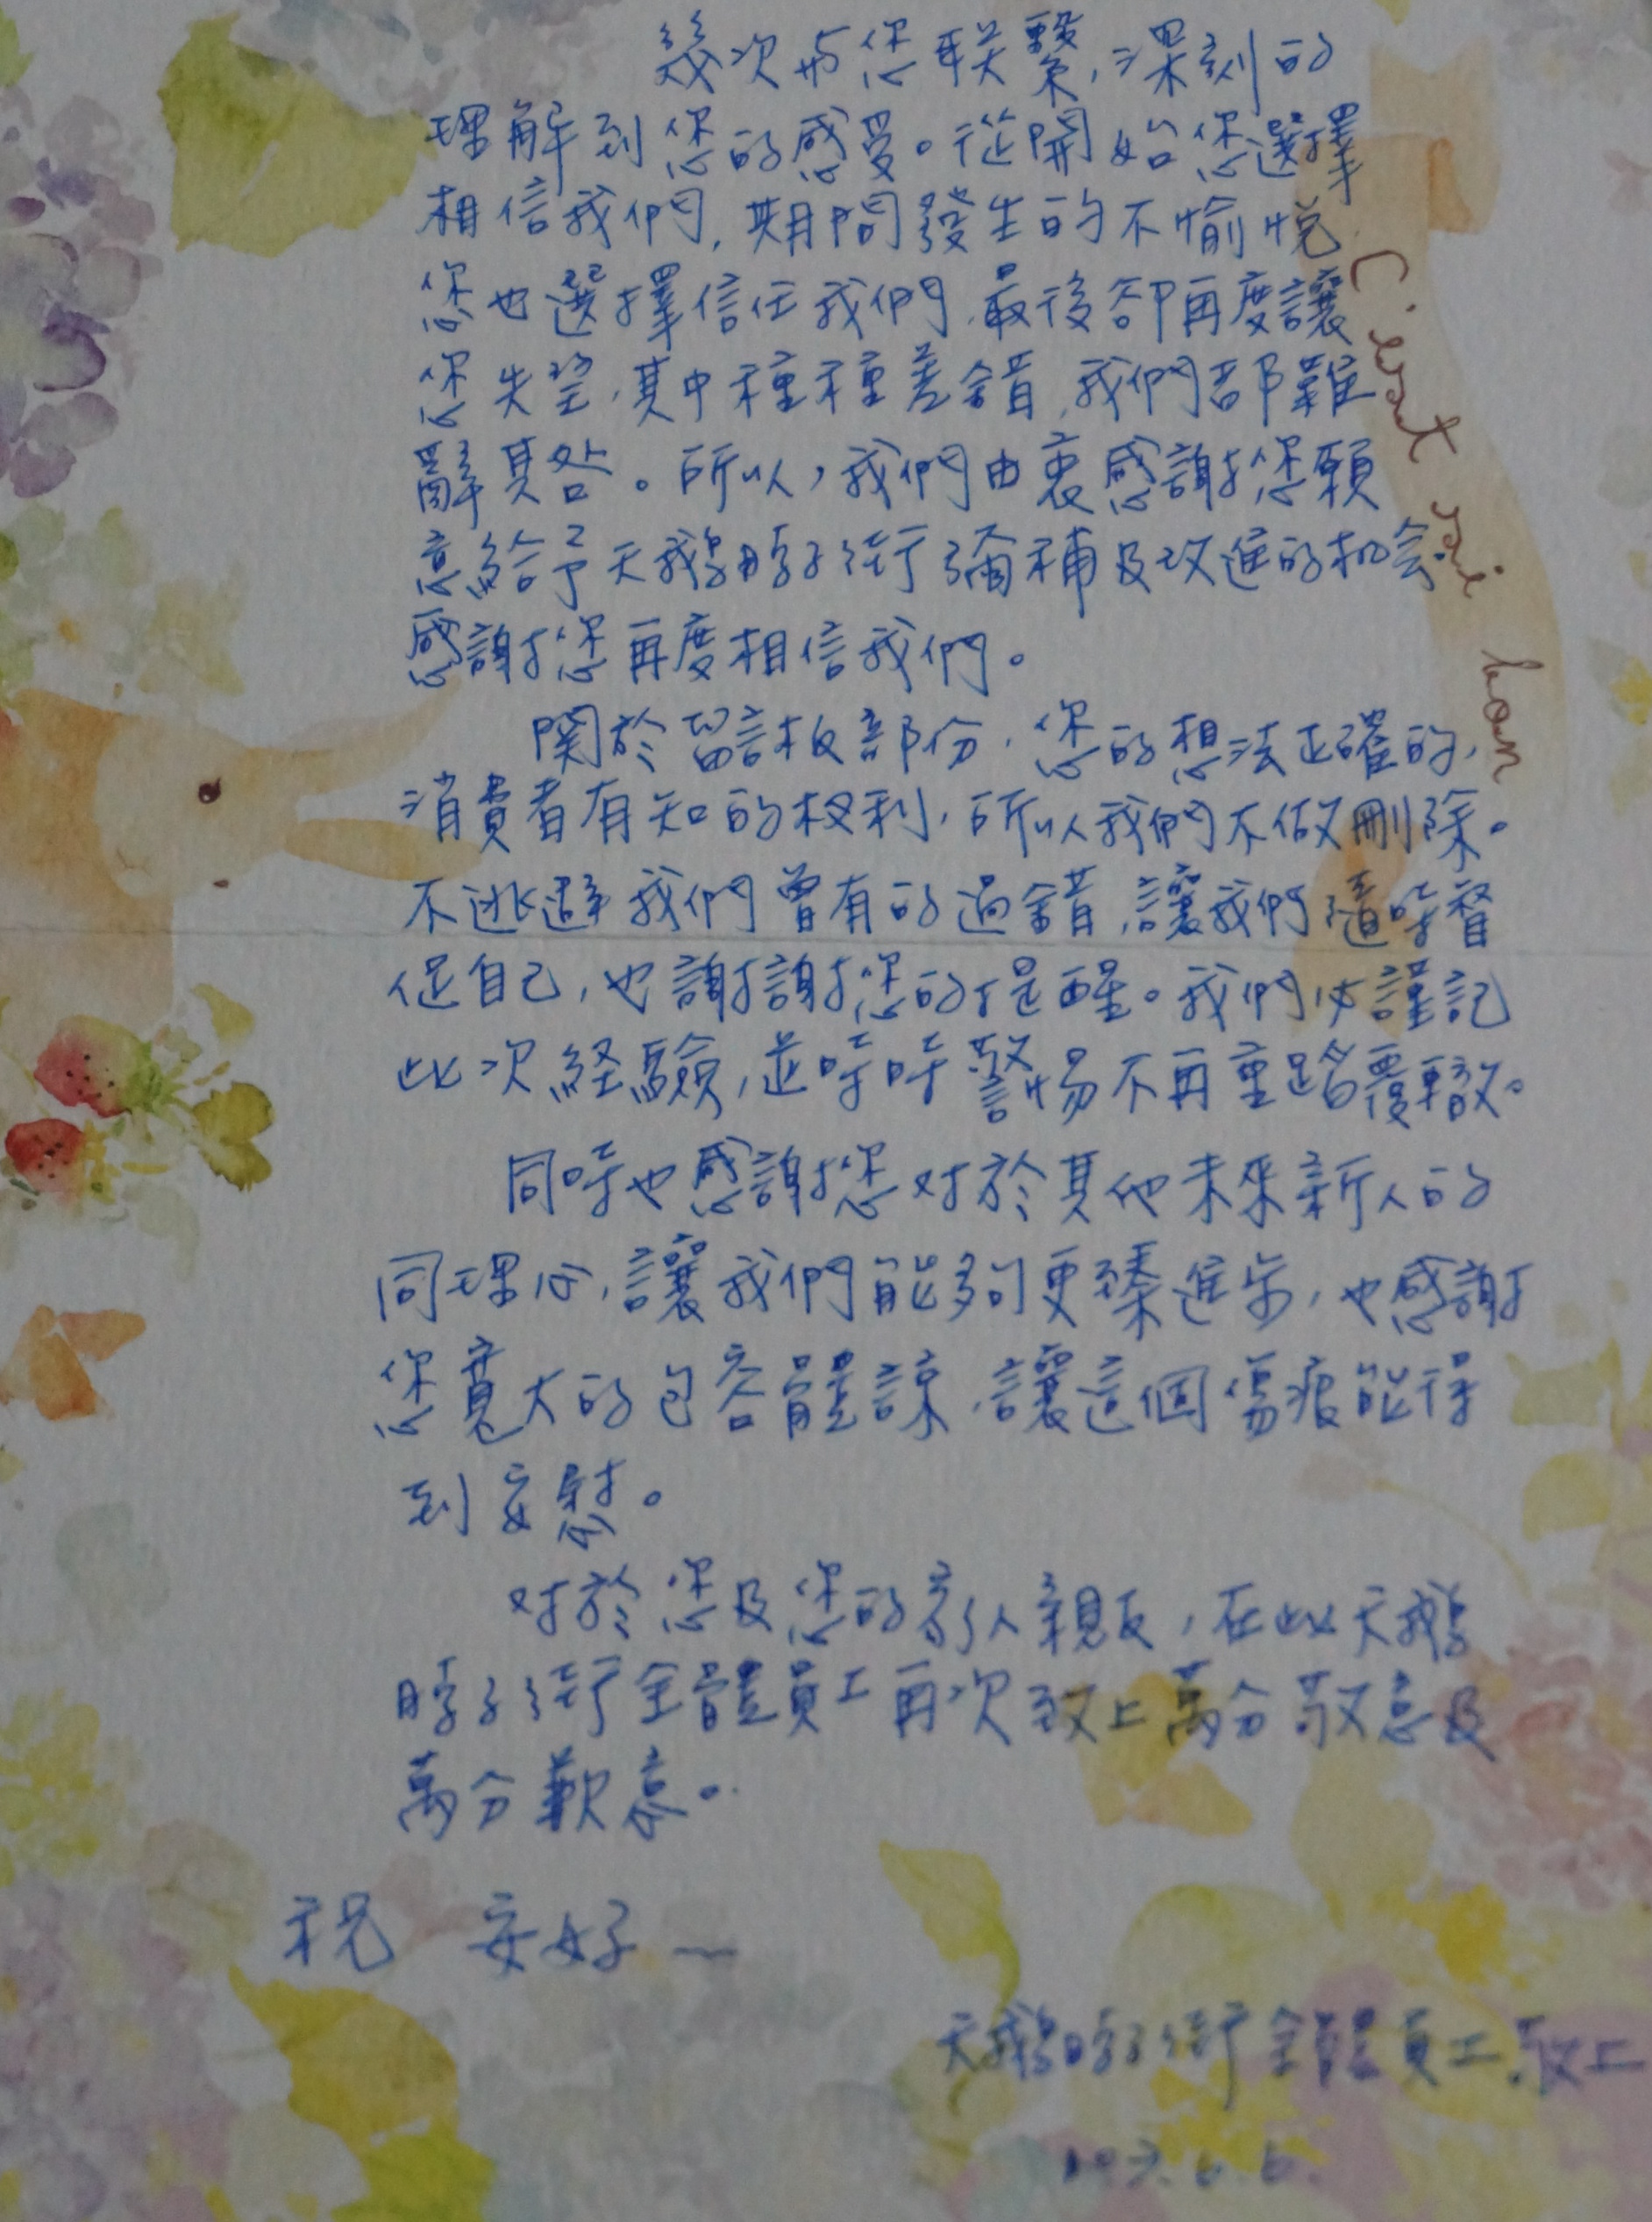 幾次与您联繫,深刻的
理解到您的感受。從開始您選擇
相信我們,期間發生的不愉悅
您也選擇信任我們,最後卻再度讓
您失望,其中種種差錯,我們都難
辭其咎。所以,我們由衷感謝您願
意給予天鵝脖子街彌補及改進的机会.
感謝您再度相信我們。
関於留言板部份,您的想法正確的,
消費者有知的权利,所以我們不做刪除。
不逃避我們曾有的過錯,讓我們隨時督
促自己,也謝謝您的提醒。我們必謹記
此次経驗,並時時警惕不再重蹈覆轍。
同時也感謝您对於其他未來新人的
同理心,讓我們能夠更臻進步,也感謝
您寬大的包容體諒,讓這個傷痕能得
到安慰。
对於您及您的家人親友,在此天鵝
脖子街全體員工再次致上萬分敬意及
萬分歉意。
祝 安好~
天鵝脖子街全體員工.敬上
103.6.6.
C'est si bon